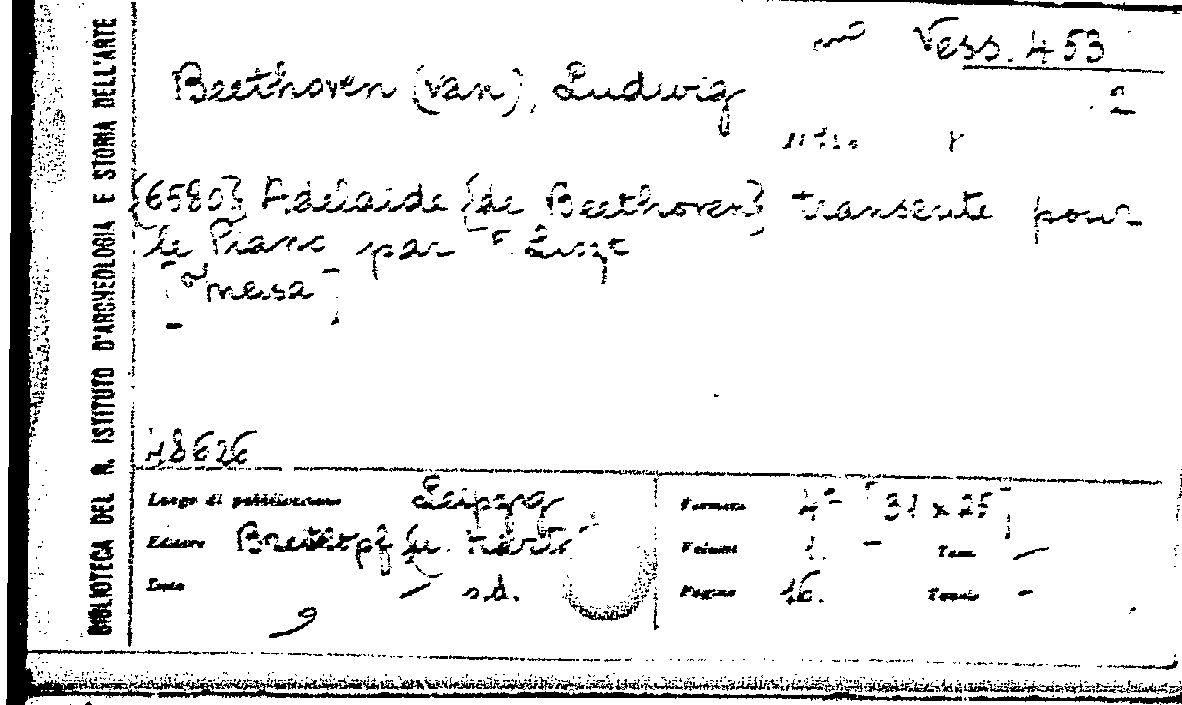 BIBLIOTECA DEL R. ISTITUTO D'ARCHEOLOGIA E STORIA DELL'ARTE
Vess. 453
Beethoven (van), Ludwig
2
[6580] Adelaide [de Beethoven] transcrite pour
le Piano par F. Liszt
48626
Luogo di pubblicazione Leipzig
Editore Breitkopf &
Data - s.d.
Formato 4° [31 x 25]
Volumi 1. Tom. -
Pagine 16. Tavole -